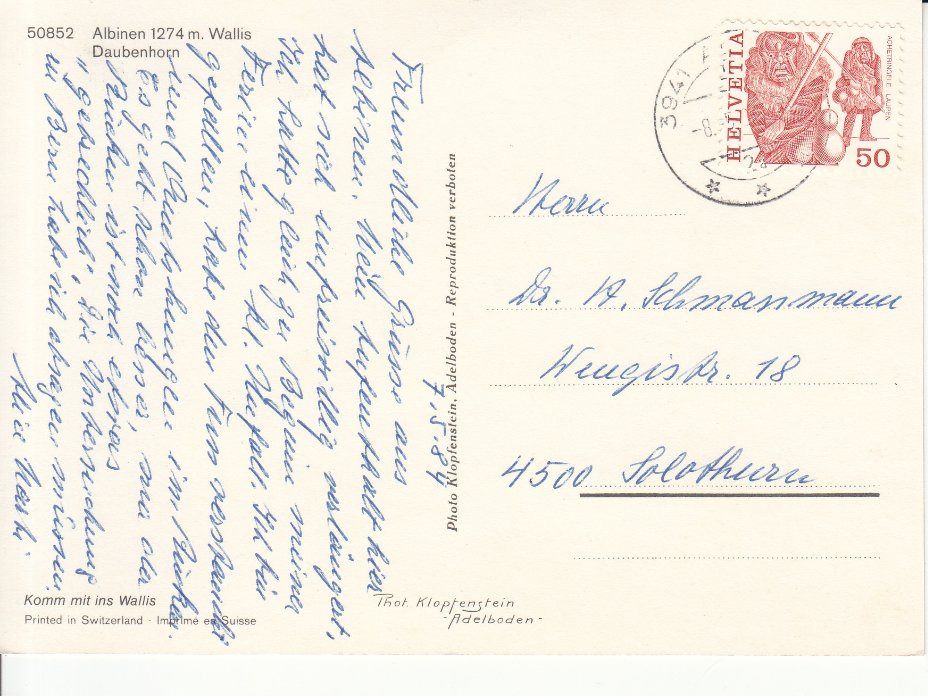 50852 Albinen 1274 m. Wallis
Daubenhorn
7.5.84
Freundliche Grüsse aus
Albinen. Mein Aufenthalt hier
hat sich unfreiwillig verlängert,
ich hatte gleich zu Beginn meiner
Ferien einen kl. Unfall. Ich bin
gefallen, habe den Fuss verstaucht
und Quetschungen im Rücken.
Es geht schon besser, nur der
Rücken ist noch etwas
"gebrechlich". Die Untersuchung
in Bern habe ich absagen müssen.
Alice
Komm mit ins Wallis
Printed in Switzerland · Imprimé en Suisse
Photo Klopfenstein, Adelboden - Reproduktion verboten
Phot. Klopfenstein
-Adelboden-
3941 A
-8.
HELVETIA
ACHETRINGELE LAUPEN
50
Herrn
Dr. A. Schmassmann
Wengistr. 18
4500 Solothurn